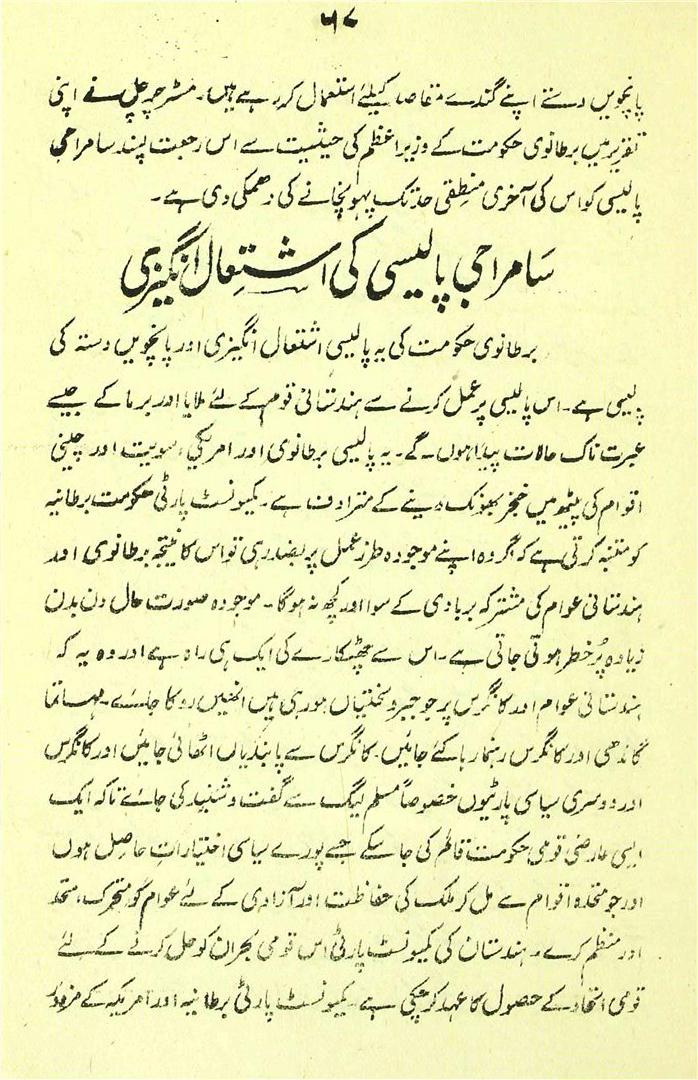 ۵۷
پانچویں دستے اپنے گندے مقاصد کیلئے استعمال کر رہے ہیں۔ مسٹر چرچل نے اپنی
تقریر میں برطانوی حکومت کے وزیر اعظم کی حیثیت سے اس رجعت پسند سامراجی
پالیسی کو اس کی آخری منطقی حد تک پہونچانے کی دھمکی دی ہے۔
سامراجی پالیسی کی اشتعال انگیزی
برطانوی حکومت کی یہ پالیسی اشتعال انگیزی اور پانچویں دستہ کی
پالیسی ہے۔ اس پالیسی پر عمل کرنے سے ہندستانی قوم کے لئے ملایا اور برما کے جیسے
عبرت ناک حالات پیدا ہوں گے۔ یہ پالیسی برطانوی اور امریکی، سویت اور چینی
اقوام کی پیٹھ میں خنجر بھونک دینے کے مترادف ہے۔ کمیونسٹ پارٹی حکومت برطانیہ
کو متنبہ کرتی ہے کہ اگر وہ اپنے موجودہ طرز عمل پر بضد رہی تو اس کا نتیجہ برطانوی اور
ہندستانی عوام کی مشترکہ بربادی کے سوا اور کچھ نہ ہوگا۔ موجودہ صورت حال دن بدن
زیادہ پُر خطر ہوتی جاتی ہے۔ اس سے چھٹکارے کی ایک ہی راہ ہے اور وہ یہ کہ
ہندستانی عوام اور کانگرس پر جو جبر و سختیاں ہو رہی ہیں انھیں روکا جائے۔ مہاتما
گاندھی اور کانگرس رہنما رہا کئے جائیں۔ کانگرس سے پابندیاں اٹھائی جائیں اور کانگرس
اور دوسری سیاسی پارٹیوں خصوصاً مسلم لیگ سے گفت و شنید کی جائے تاکہ ایک
ایسی عارضی قومی حکومت قائم کی جا سکے جسے پورے سیاسی اختیارات حاصل ہوں
اور جو متحدہ اقوام سے مل کر ملک کی حفاظت اور آزادی کے لئے عوام کو متحرک، متحد
اور منظم کرے۔ ہندستان کی کمیونسٹ پارٹی اس قومی بحران کو حل کرنے کے لئے
قومی اتحاد کے حصول کا عہد کر چکی ہے۔ کمیونسٹ پارٹی برطانیہ اور امریکہ کے مزدور